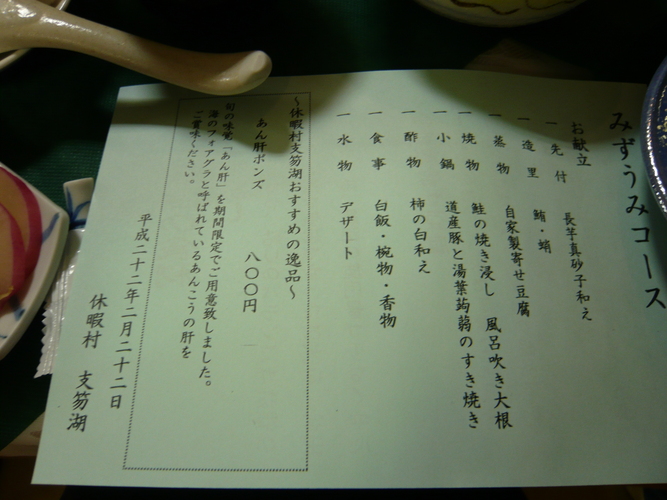 みずうみコース
お献立
一 先付 長芋真砂子和え
一 造里 鮪・蛸
一 蒸物 自家製寄せ豆腐
一 焼物 鮭の焼き浸し 風呂吹き大根
一 小鍋 道産豚と湯葉蒟蒻のすき焼き
一 酢物 柿の白和え
一 食事 白飯・椀物・香物
一 水物 デザート
～休暇村支笏湖おすすめの逸品～
あん肝ポンズ 八〇〇円
旬の味覚「あん肝」を期間限定でご用意致しました。
海のフォアグラと呼ばれているあんこうの肝を
ご賞味ください。
平成二十二年二月二十二日
休暇村 支笏湖